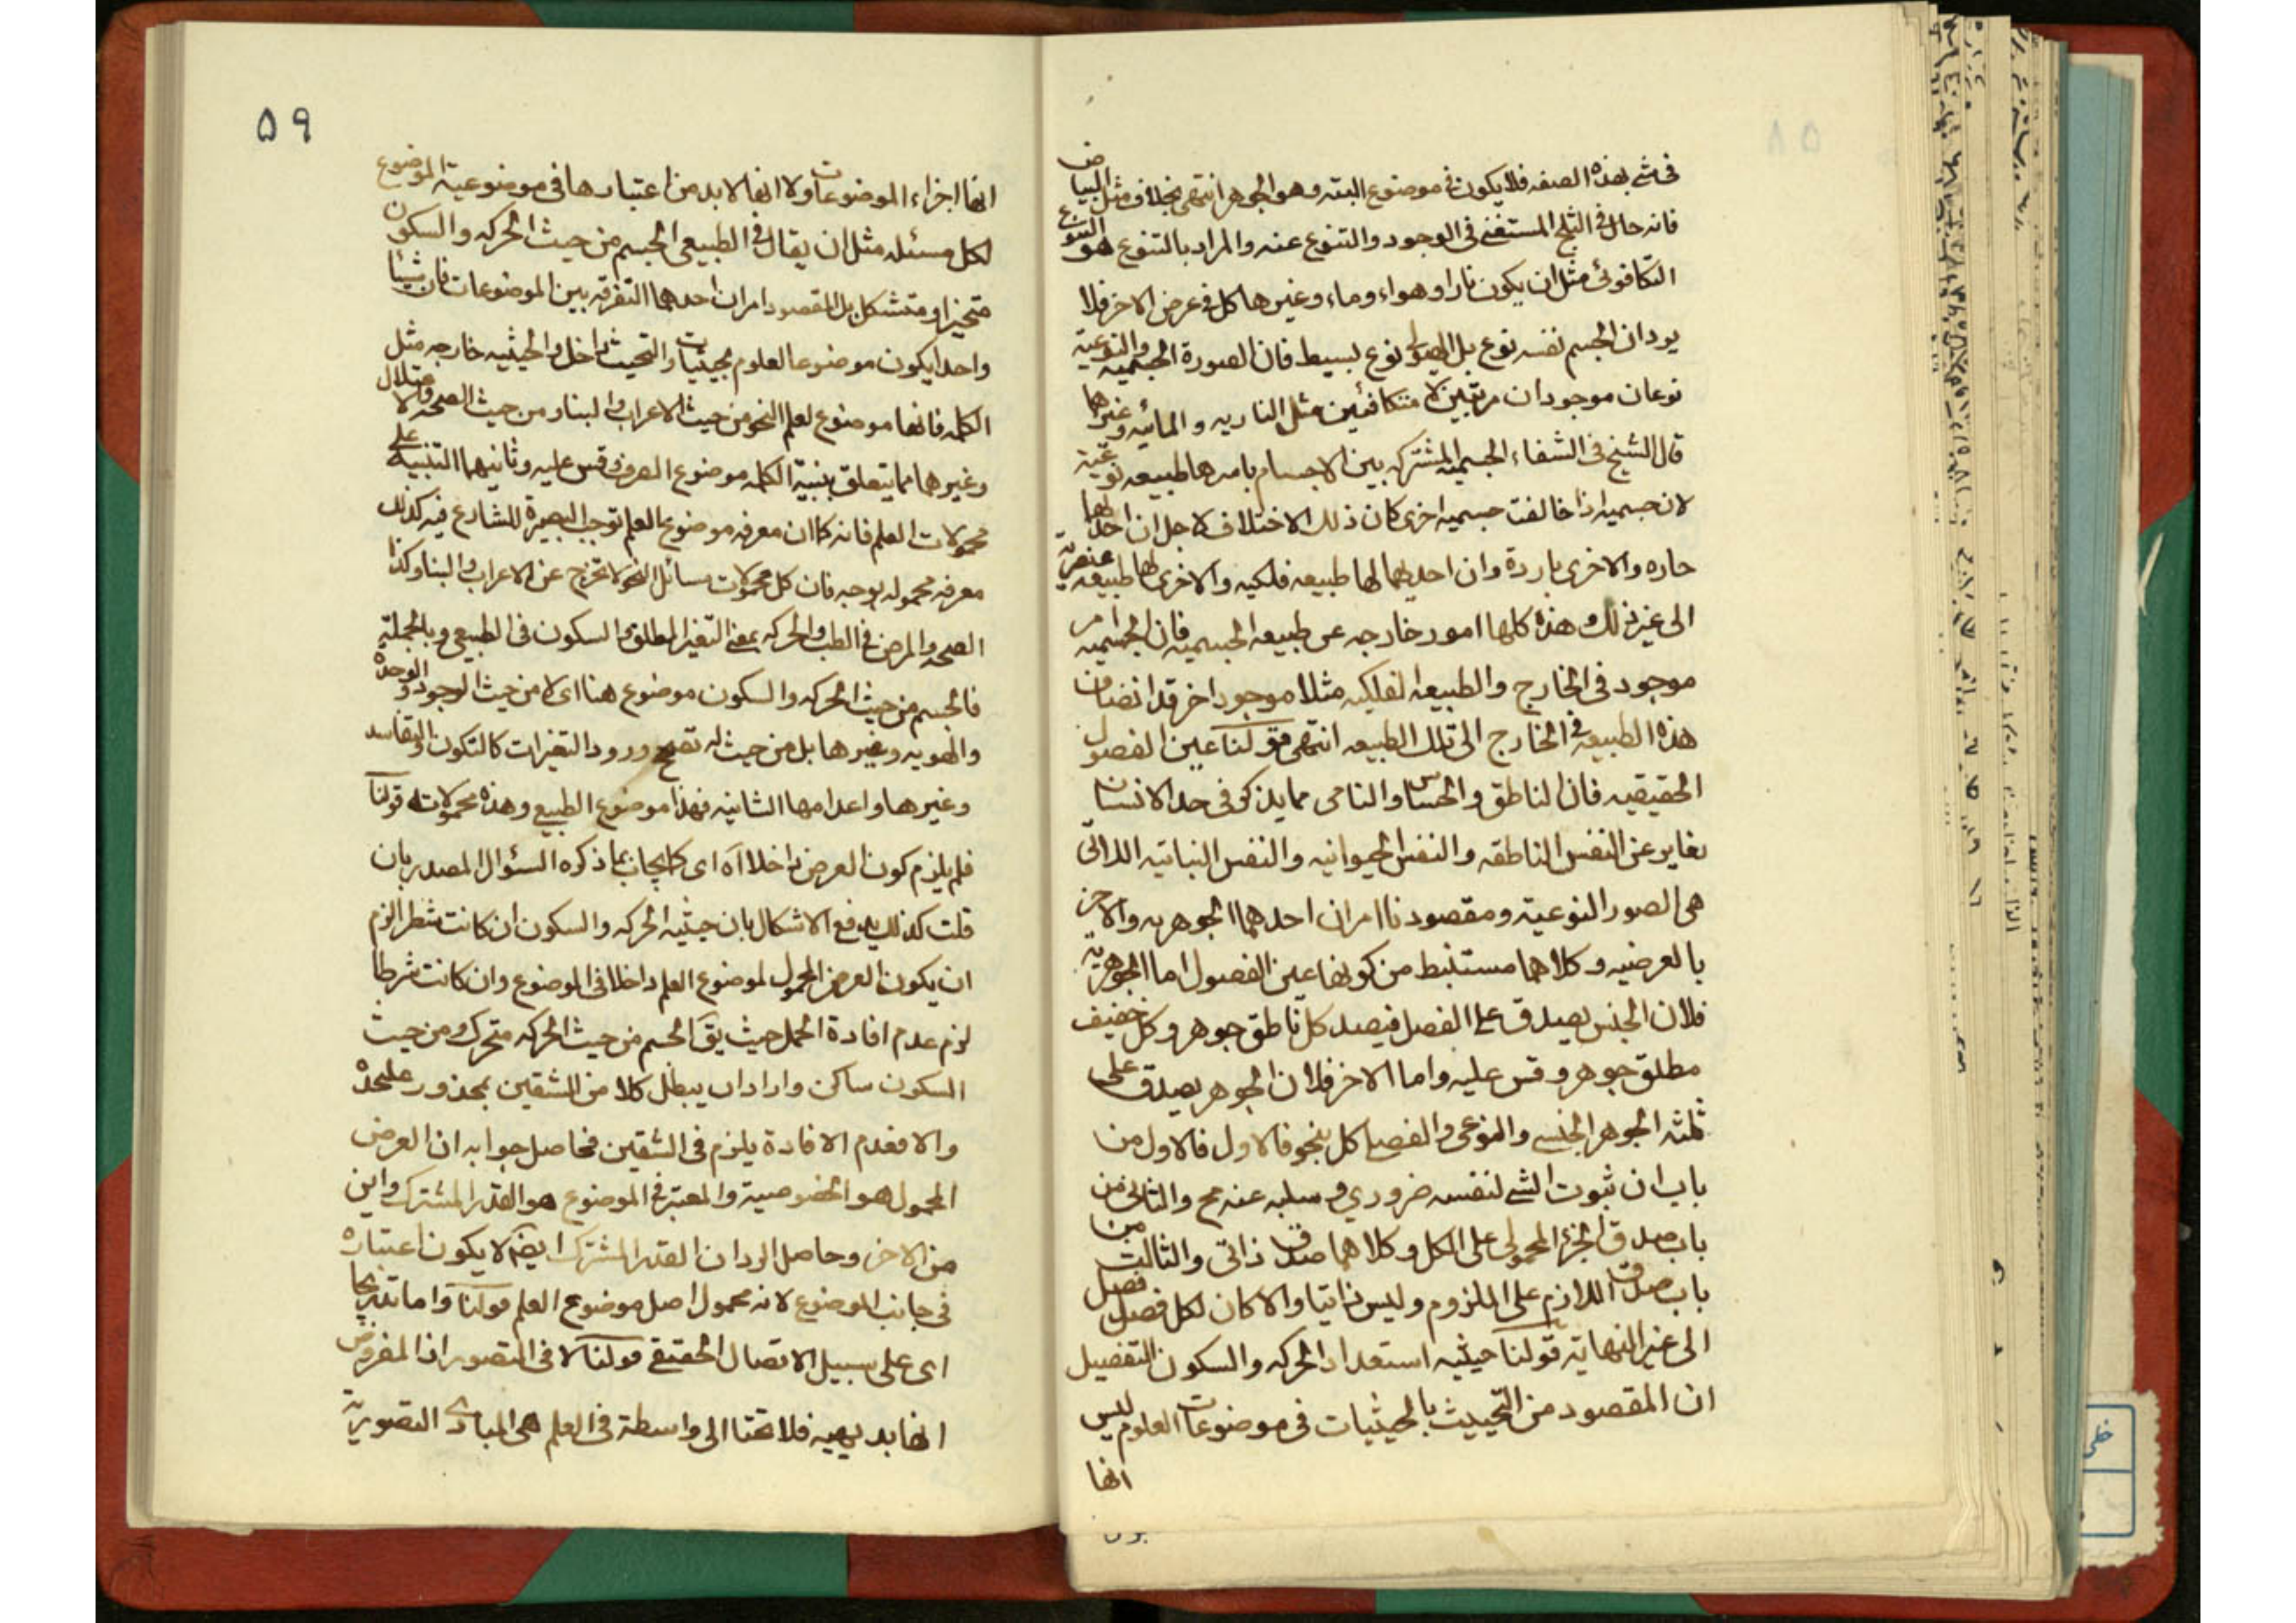 فی شئ بهذه الصفه فلا یکون فی موضوع البته وهو الجوهر انتهی بخلاف مثل البیاض
فانه حال فی الثلج المستغنی فی الوجود والتنوع عنه والمراد بالتنوع هو التنوع
التکافوئی مثل ان یکون نارا و هواء وماء وغیرها کل فی عرض الاخر فلا
یرد ان الجسم نفسه نوع بل الهیولی نوع بسیط فان الصورة الجسمیه والنوعیة
نوعان موجودان مرتبین لا متکافئین مثل الناریه والمائیه وغیرها
قال الشیخ فی الشفاء الجسمیه المشترکه بین الاجسام باسرها طبیعه نوعیة
لان جسمیه اذا خالفت جسمیه اخری کان ذلک الاختلاف لاجل ان احدیها
حاره والاخری باردة وان احدیهما لها طبیعه فلکیه والاخری لها طبیعه عنصریة
الی غیر ذلک وهذه کلها امور خارجه عن طبیعه الجسمیه فان الجسمیه امر
موجود فی الخارج والطبیعه الفلکیه مثلا موجود اخر قد انضاف
هذه الطبیعه فی الخارج الی تلک الطبیعه انتهی قولنا عین الفصول
الحقیقیه فان الناطق والحساس والنامی مما یذکر فی حد الانسان
تغایر عن النفس الناطقه والنفس الحیوانیه والنفس النباتیه اللاتی
هی الصور النوعیة ومقصودنا امران احدهما الجوهریه والاخر
بالعرضیه وکلاهما مستنبط من کونها عین الفصول اما الجوهریة
فلان الجنس یصدق علی الفصل فیصدق کل ناطق جوهر وکل خفیف
مطلق جوهر وقس علیه واما الاخر فلان الجوهر یصدق علی
ثلثه الجوهر الجنسی والنوعی والفصلی کل بنحو فالاول فالاول من
باب ان ثبوت الشئ لنفسه ضروری وسلبه عنه مح والثانی من
باب صدق الجزء المحمولی علی الکل وکلاهما صدق ذاتی والثالث من
باب صدق اللازم علی الملزوم ولیس ذاتیا والا کان لکل فصل فصل
الی غیر النهایة قولنا حیثیه استعداد الحرکه والسکون التفصیل
ان المقصود من التحییث بالحیثیات فی موضوعات العلوم لیس
انها
۵۹
انها اجزاء الموضوعات ولا انها لابد من اعتبارها فی موضوعیة الموضوع
لکل مسئله مثل ان یقال فی الطبیعی الجسم من حیث الحرکه والسکون
متحیز او متشکل بل المقصود امران احدهما التفرقه بین الموضوعات فان شیئا
واحدا یکون موضوعا لعلوم بحیثیات والتحیث داخل والحیثیه خارجه مثل
الکلمه فانها موضوع لعلم النحو من حیث الاعراب والبناء ومن حیث الصحه والاعتلال
وغیرهما مما یتعلق ببنیة الکلمه موضوع الصرف وقس علیه وثانیهما التنبیه علی
محمولات العلم فانه کما ان معرفه موضوع العلم توجب البصیرة للشارع فیه کذلک
معرفه محموله بوجه فان کل محمولات مسائل النحو لا تخرج عن الاعراب والبنا وکذا
الصحه والمرض فی الطب والحرکه بمعنی التغیر المطلق والسکون فی الطبیعی وبالجملة
فالجسم من حیث الحرکه والسکون موضوع هنا ای لا من حیث الوجود والوحدة
والهویه وغیرها بل من حیث له تصحح ورود التغیرات کالتکون والتفاسد
وغیرها واعدامها الشانیه فهذا موضوع الطبیعی وهذه محمولاته قولنا
فلم یلزم کون العرض داخلا آه ای کما یجاب بما ذکره السؤال المصدر بان
قلت کذلک یدفع الاشکال بان حیثیه الحرکه والسکون ان کانت شطرا لزم
ان یکون العرض المحمول لموضوع العلم داخلا فی الموضوع وان کانت شرطا
لزم عدم افادة الحمل حیث یق الجسم من حیث الحرکه متحرک ومن حیث
السکون ساکن واراد ان یبطل کلا من الشقین بمحذور علیحده
والا فعدم الافادة یلزم فی الشقین فحاصل جوابه ان العرض
المحمول هو الخصوصیة والمعتبر فی الموضوع هو القدر المشترک واین
من الاخر وحاصل الرد ان القدر المشترک ایضا لا یکون اعتباره
فی جانب الموضوع لانه محمول اصل موضوع العلم قولنا واما تدریجا
ای علی سبیل الاتصال الحقیقی قولنا لا فی التصور اذ المفروض
انها بدیهیه فلا تحتاج الی واسطة فی العلم هی المبادی التصوریة